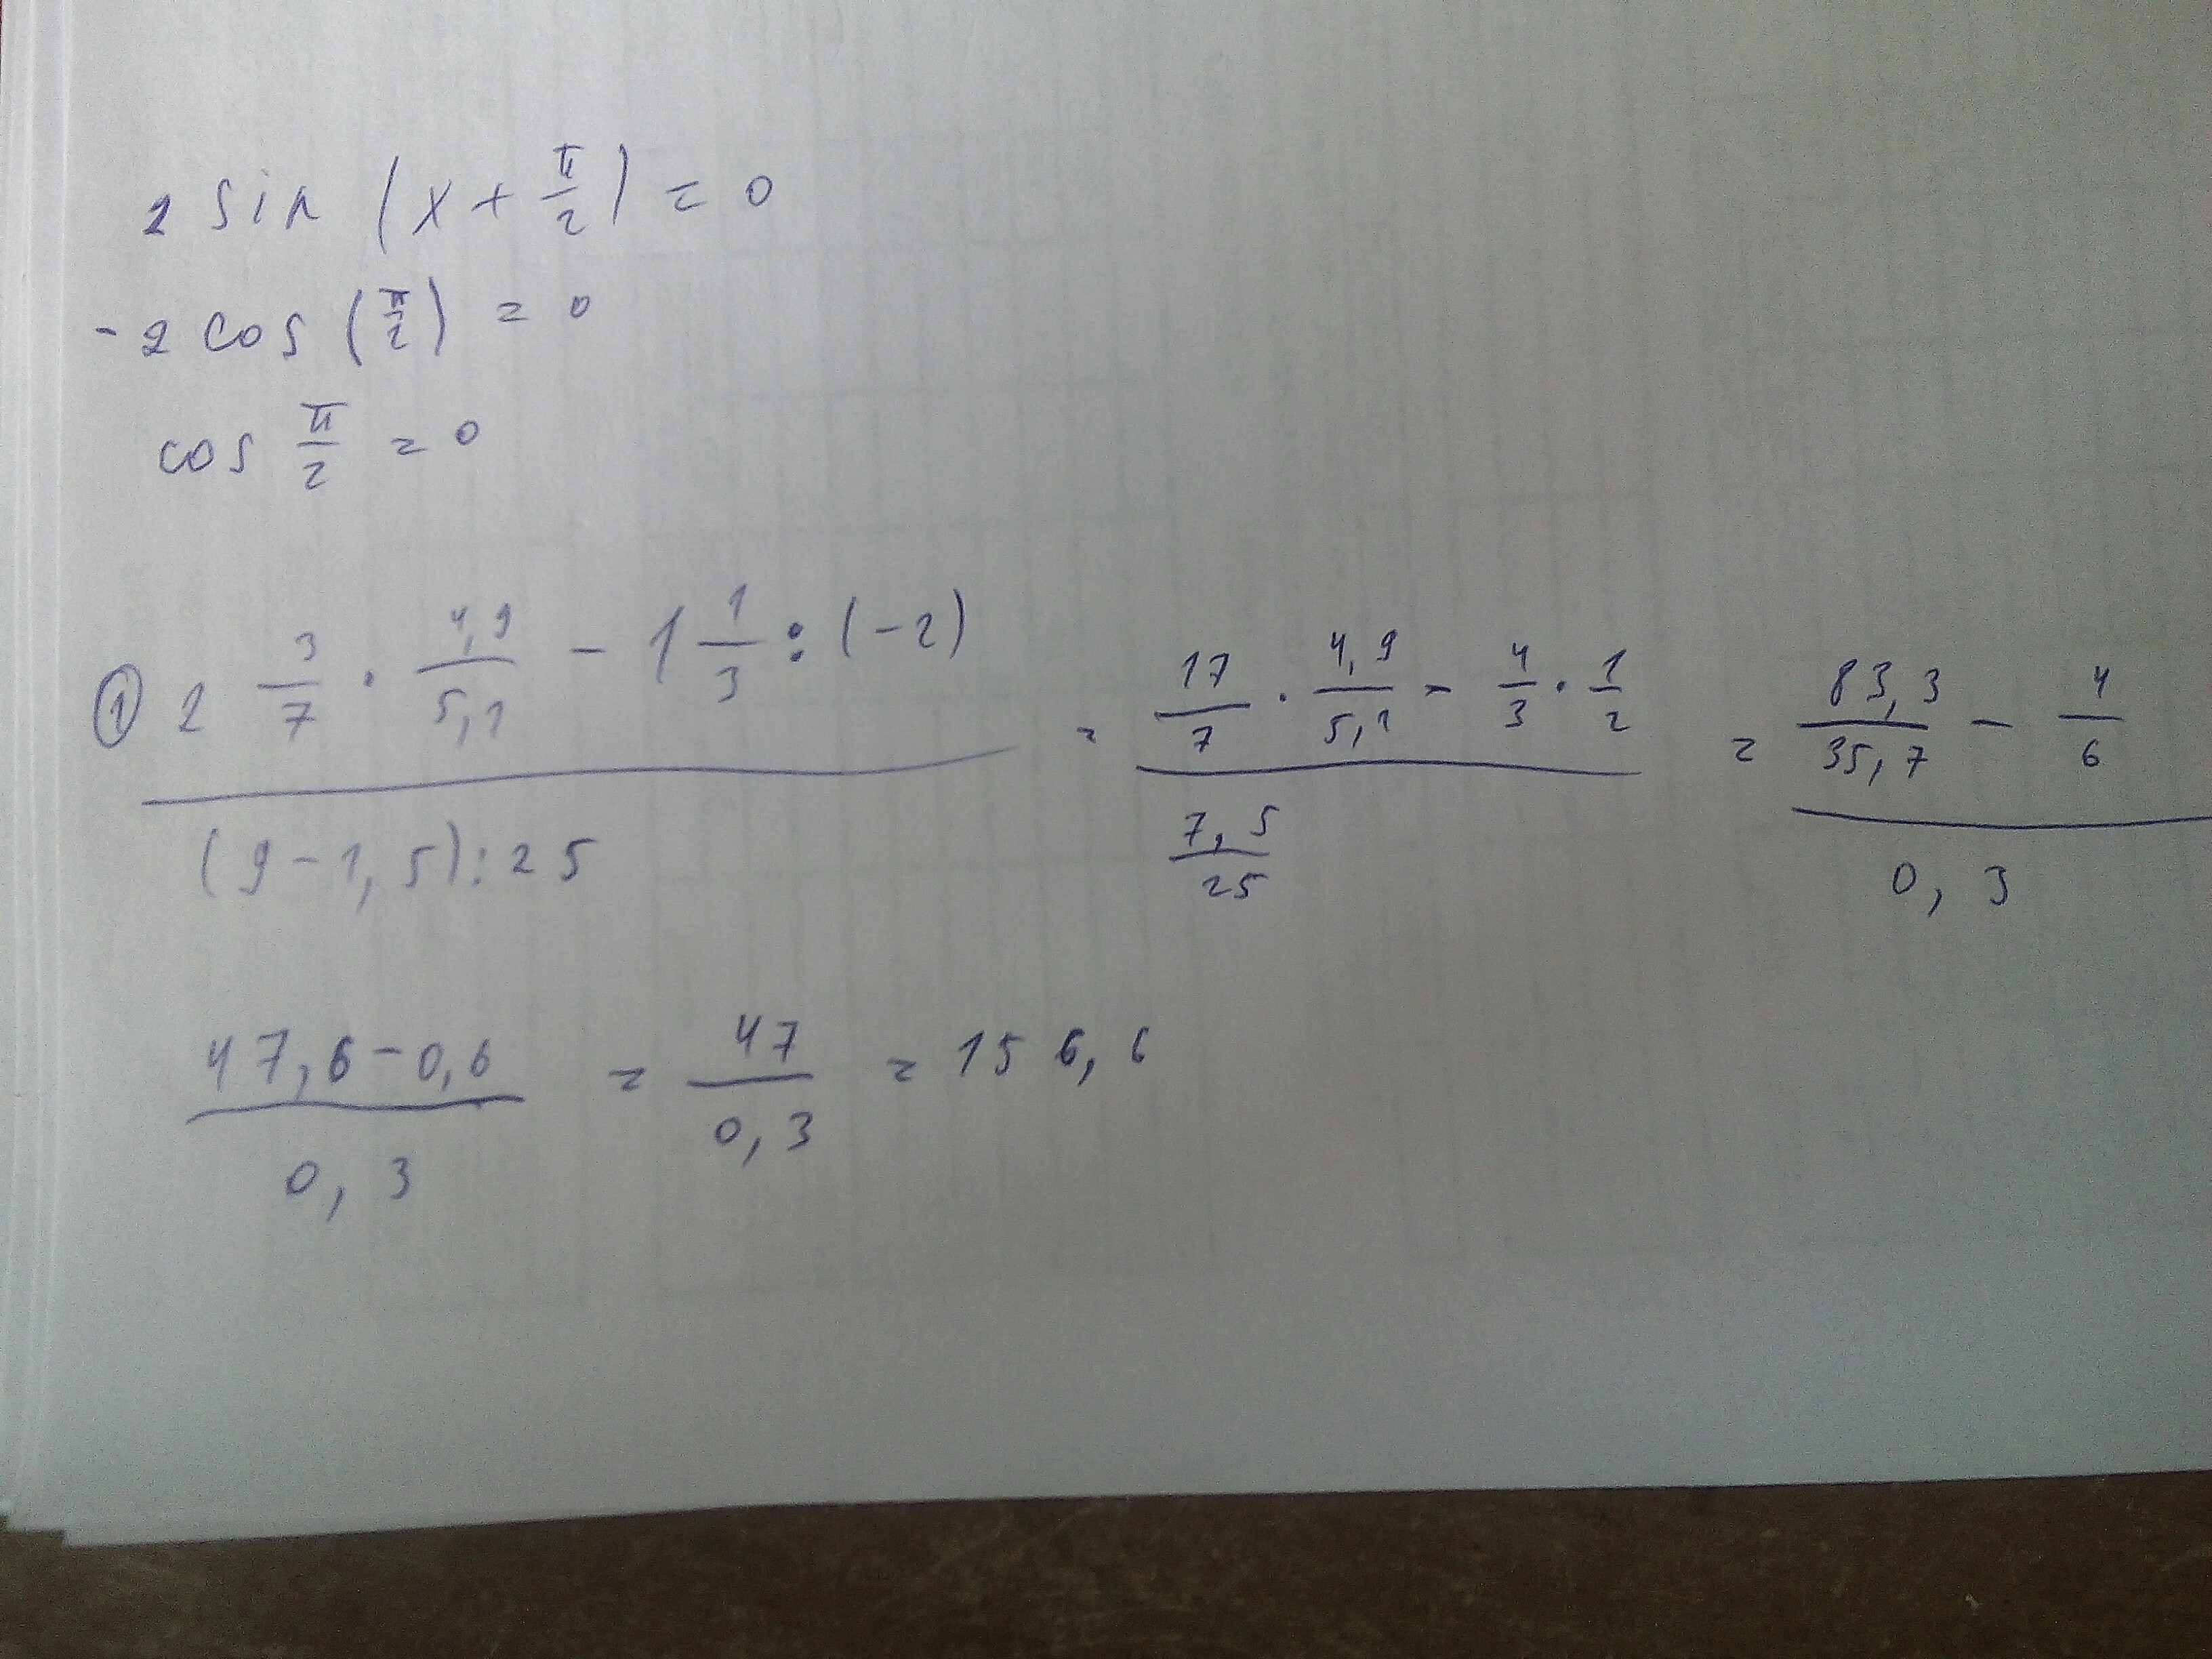 2 sin (x + π/2) = 0
-2 cos (π/2) = 0
cos π/2 = 0
① (2 3/7 · 4,9/5,1 - 1 1/3 : (-2)) / ((9-1,5):25) = (17/7 · 4,9/5,1 - 4/3 · 1/2) / (7,5/25) = (83,3/35,7 - 4/6) / 0,3
(47,6-0,6) / 0,3 = 47/0,3 = 156,6